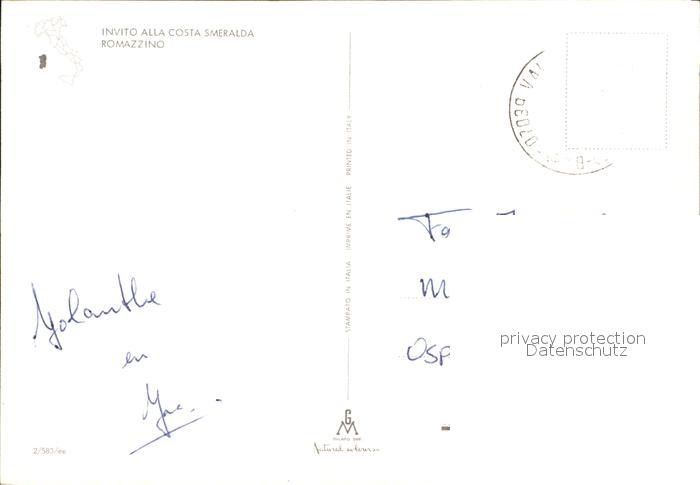 INVITO ALLA COSTA SMERALDA
ROMAZZINO
07039 VAL
STAMPATO IN ITALIA   IMPRIME EN ITALIE   PRINTED IN ITALY
Yolanthe
en
Fa
M
Osp
privacy protection
Datenschutz
GM
MILANO
natural colours
2/583/ee